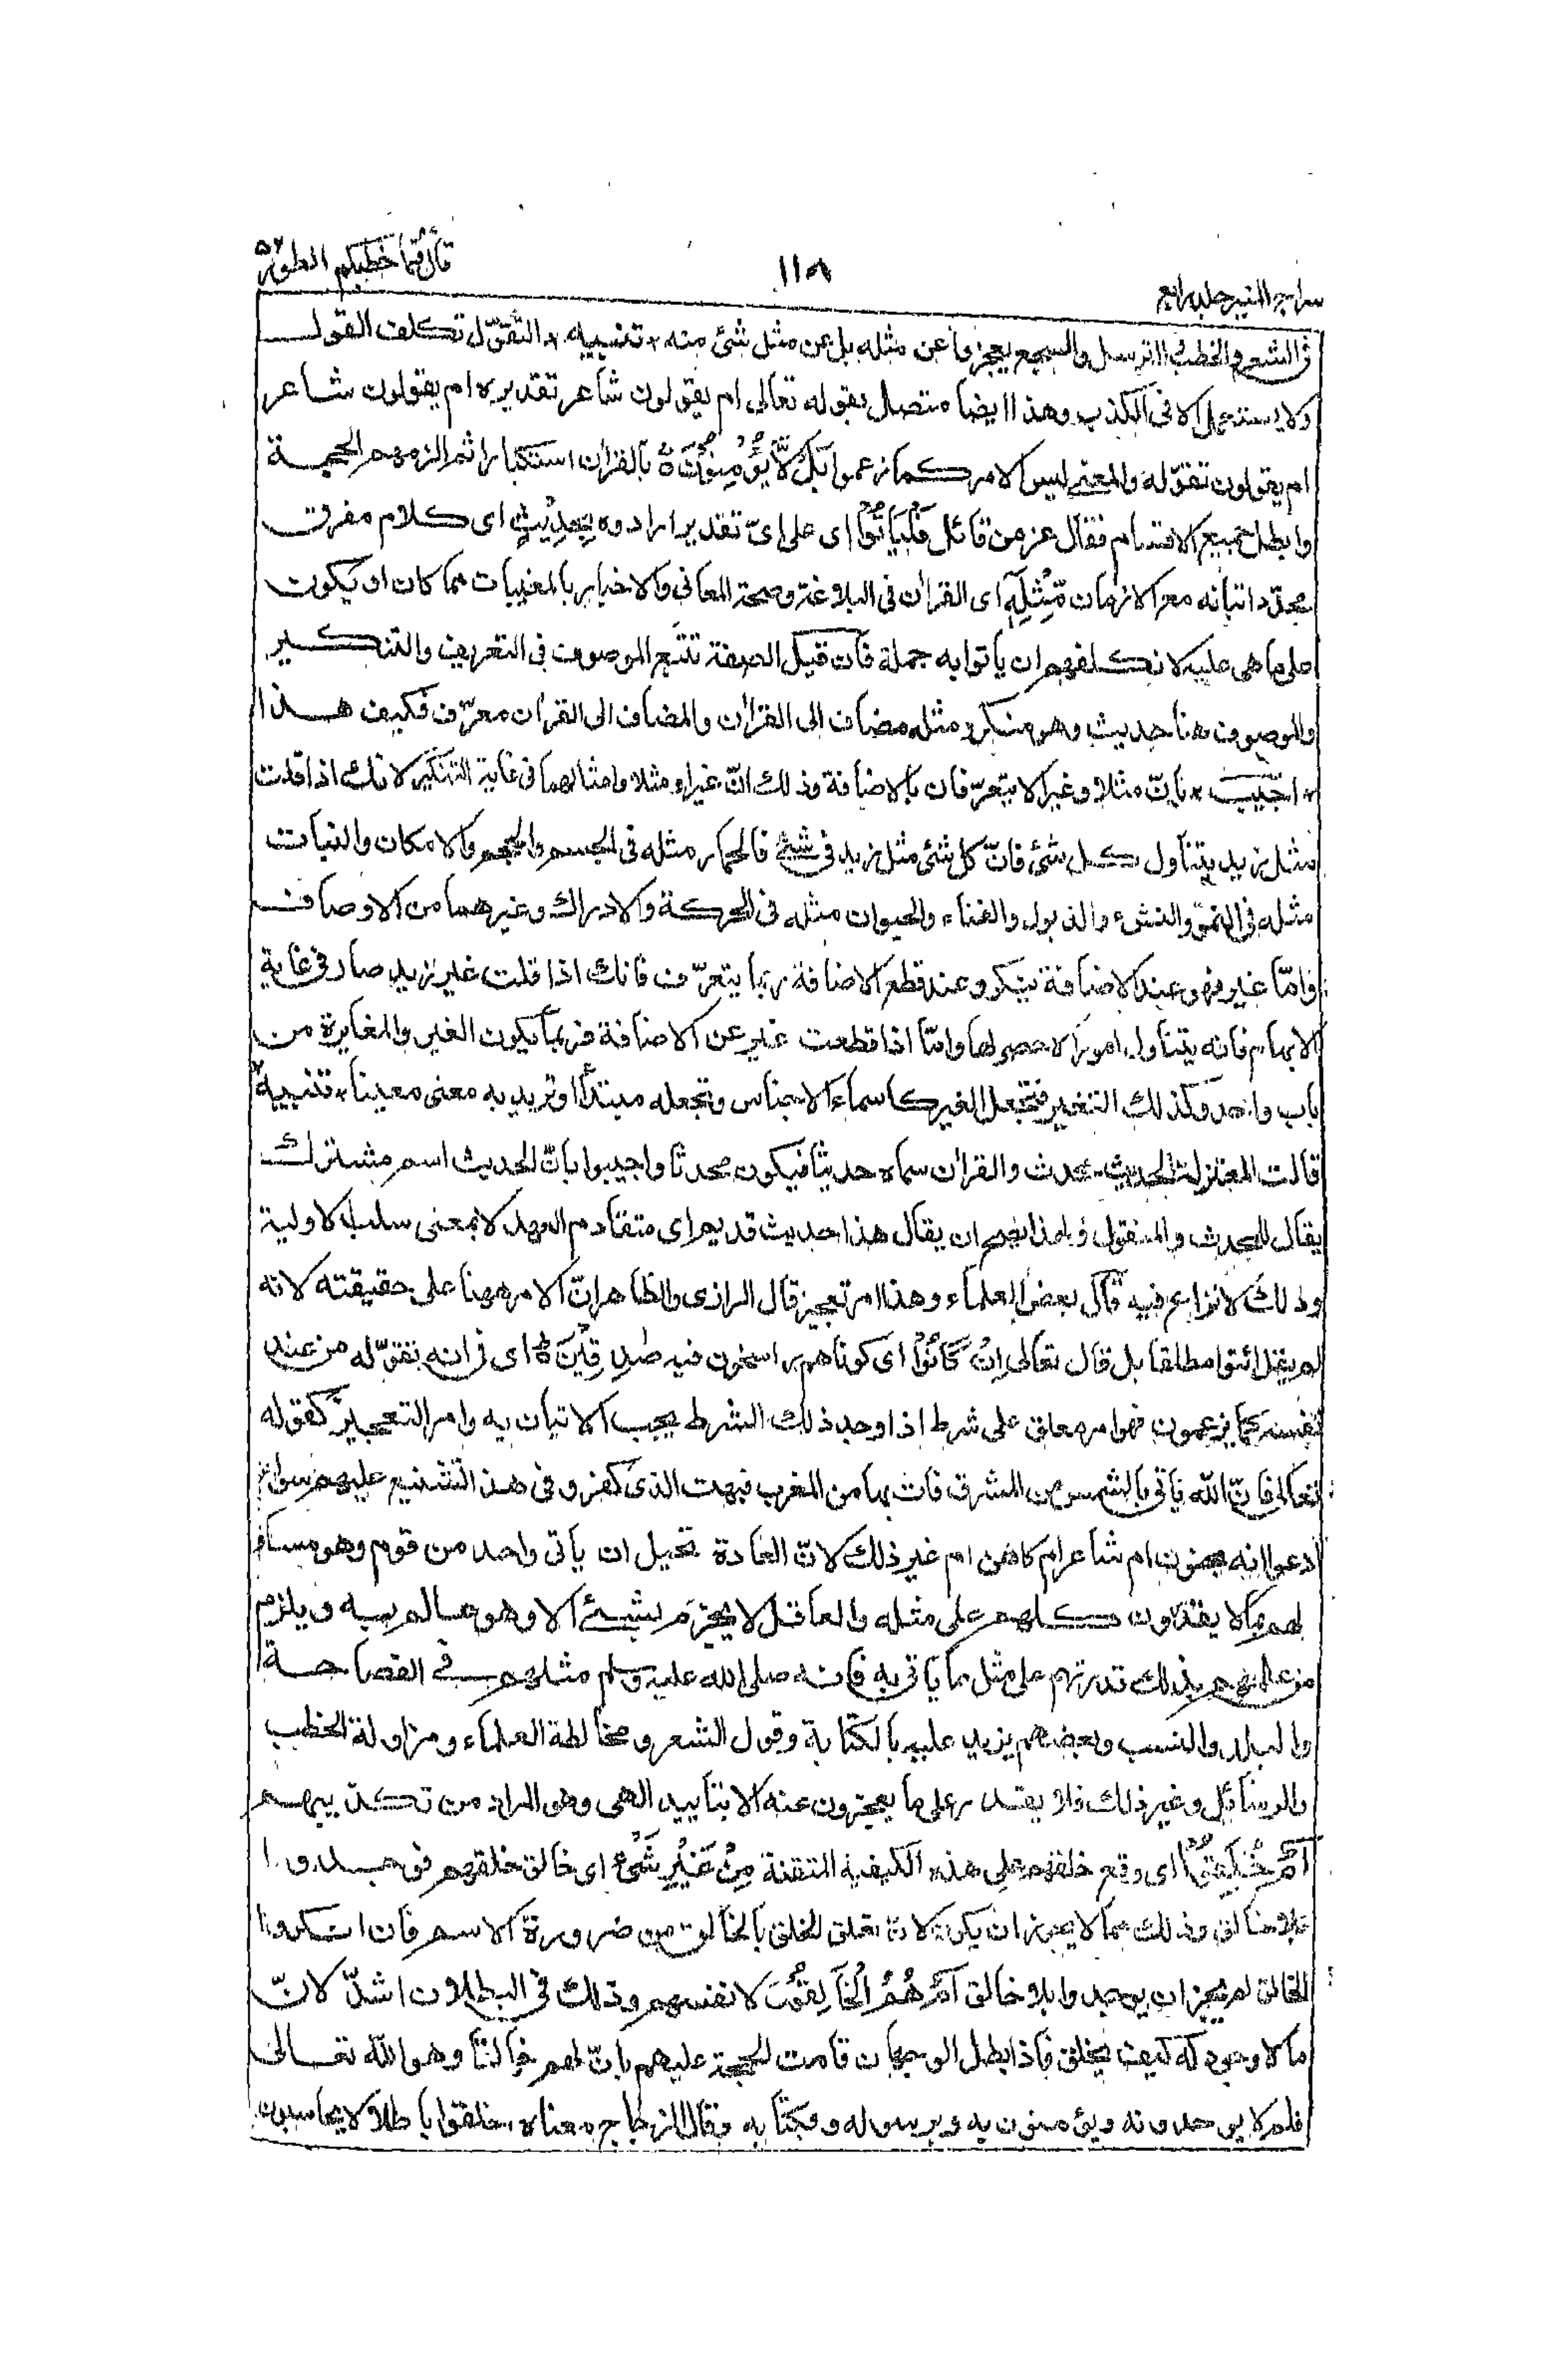 سراج المنير جلد رابع
١١٨
قال فما خطبكم الطور ٥٢
والشعر والخطب والترسل والسجع يعجزوا عن مثله بل عن مثل شئ منه * تنبيه * التقوّل تكلف القول
ولا يستعمل الا فى الكذب وهذا ايضا متصل بقوله تعالى ام يقولون شاعر تقديره ام يقولون شاعر
ام يقولون تقوّله والمعنى ليس الامر كما زعموا بَلْ لَّا يُؤْمِنُوْنَ بالقرآن استكبارا ثم الزمهم الحجة
وابطل جميع الاقسام فقال عز من قائل فَلْيَأْتُوْا اى على اىّ تقدير ارادوه بِحَدِيْثٍ اى كلام مفرق
مجدّد اتيانه مع الازمان مِّثْلِهٖ اى القرآن فى البلاغة وصحة المعانى والاخبار بالمغيبات مما كان او يكون
على ما هى عليه لا نكلفهم ان ياتوا به جملة فان قيل الصفة تتبع الموصوف فى التعريف والتنكير
والموصوف هنا حديث وهو منكر ومثله مضاف الى القرآن والمضاف الى القرآن معرّف فكيف هذا
* اجيب * بانّ مثلا وغيرا لا يتعرّفان بالاضافة وذلك انّ غيرا ومثلا وامثالهما فى غاية التنكير لانك اذا قلت
مثل زيد يتناول كل شئ فانّ كل شئ مثل زيد فى شئ فالحمار مثله فى الجسم والحجم والامكان والنبات
مثله فى النموّ والنشء والذبول والفناء والحيوان مثله فى الحركة والادراك وغيرهما من الاوصاف
وامّا غير فهو عند الاضافة ينكر وعند قطع الاضافة ربما يتعرّف فانك اذا قلت غير زيد صار فى غاية
الابهام فانه يتناول امورا لا حصر لها وامّا اذا قطعت غير عن الاضافة فربما يكون الغير والمغايرة من
باب واحد وكذلك التغير فتجعل الغير كاسماء الاجناس وتجعله مبتدأ او تريد به معنى معينا * تنبيه *
قالت المعتزلة الحديث محدث والقرآن سماه حديثا فيكون محدثا واجيبوا بانّ الحديث اسم مشترك
يقال للمحدث والمنقول ولهذا يصح ان يقال هذا حديث قديم اى متقادم العهد لا بمعنى سلب الاولية
وذلك لا نزاع فيه قال بعض العلماء وهذا امر تعجيز قال الرازى والظاهر انّ الامر ههنا على حقيقته لانه
لم يقل ائتوا مطلقا بل قال تعالى اِنْ كَانُوْا اى كوناهم راسخون فيه صٰدِقِيْنَ اى فى انه تقوّله من عند
نفسه كما يزعمون فهو امر معلق على شرط اذا وجد ذلك الشرط يجب الاتيان به وامر التعجيز كقوله
تعالى فانّ الله ياتى بالشمس من المشرق فات بها من المغرب فبهت الذى كفر وفى هذا التشنيع عليهم سواء
ادعوا انه مجنون ام شاعر ام كاهن ام غير ذلك لانّ العادة تحيل ان ياتى واحد من قوم وهو مساو
لهم بما لا يقدرون كلهم على مثله والعاقل لا يجزم بشئ الا وهو عالم به ويلزم
من علمهم بذلك قدرتهم على مثل ما ياتى به فانه صلى الله عليه وسلم مثلهم فى الفصاحة
والبلد والنسب وبعضهم يزيد عليه بالكتابة وقول الشعر ومخالطة العلماء ومزاولة الخطب
والرسائل وغير ذلك فلا يقدر على ما يعجزون عنه الا بتاييد الهى وهو المراد من تكذيبهم
اَمْ خُلِقُوْا اى وقع خلقهم على هذه الكيفية المتقنة مِنْ غَيْرِ شَىْءٍ اى خالق خلقهم فوجدوا
بلا خالق وذلك مما لا يجوز ان يكون لانّ تعلق الخلق بالخالق من ضرورة الاسم فان انكروا
الخالق لم يجز ان يوجدوا بلا خالق اَمْ هُمُ الْخَالِقُوْنَ لانفسهم وذلك فى البطلان اشدّ لانّ
ما لا وجود له كيف يخلق فاذا بطل الوجهان قامت الحجة عليهم بانّ لهم خالقا وهو الله تعالى
فلم لا يوحدونه ويؤمنون به وبرسوله وبكتابه وقال الزجاج معناه اخلقوا باطلا لا يحاسبون